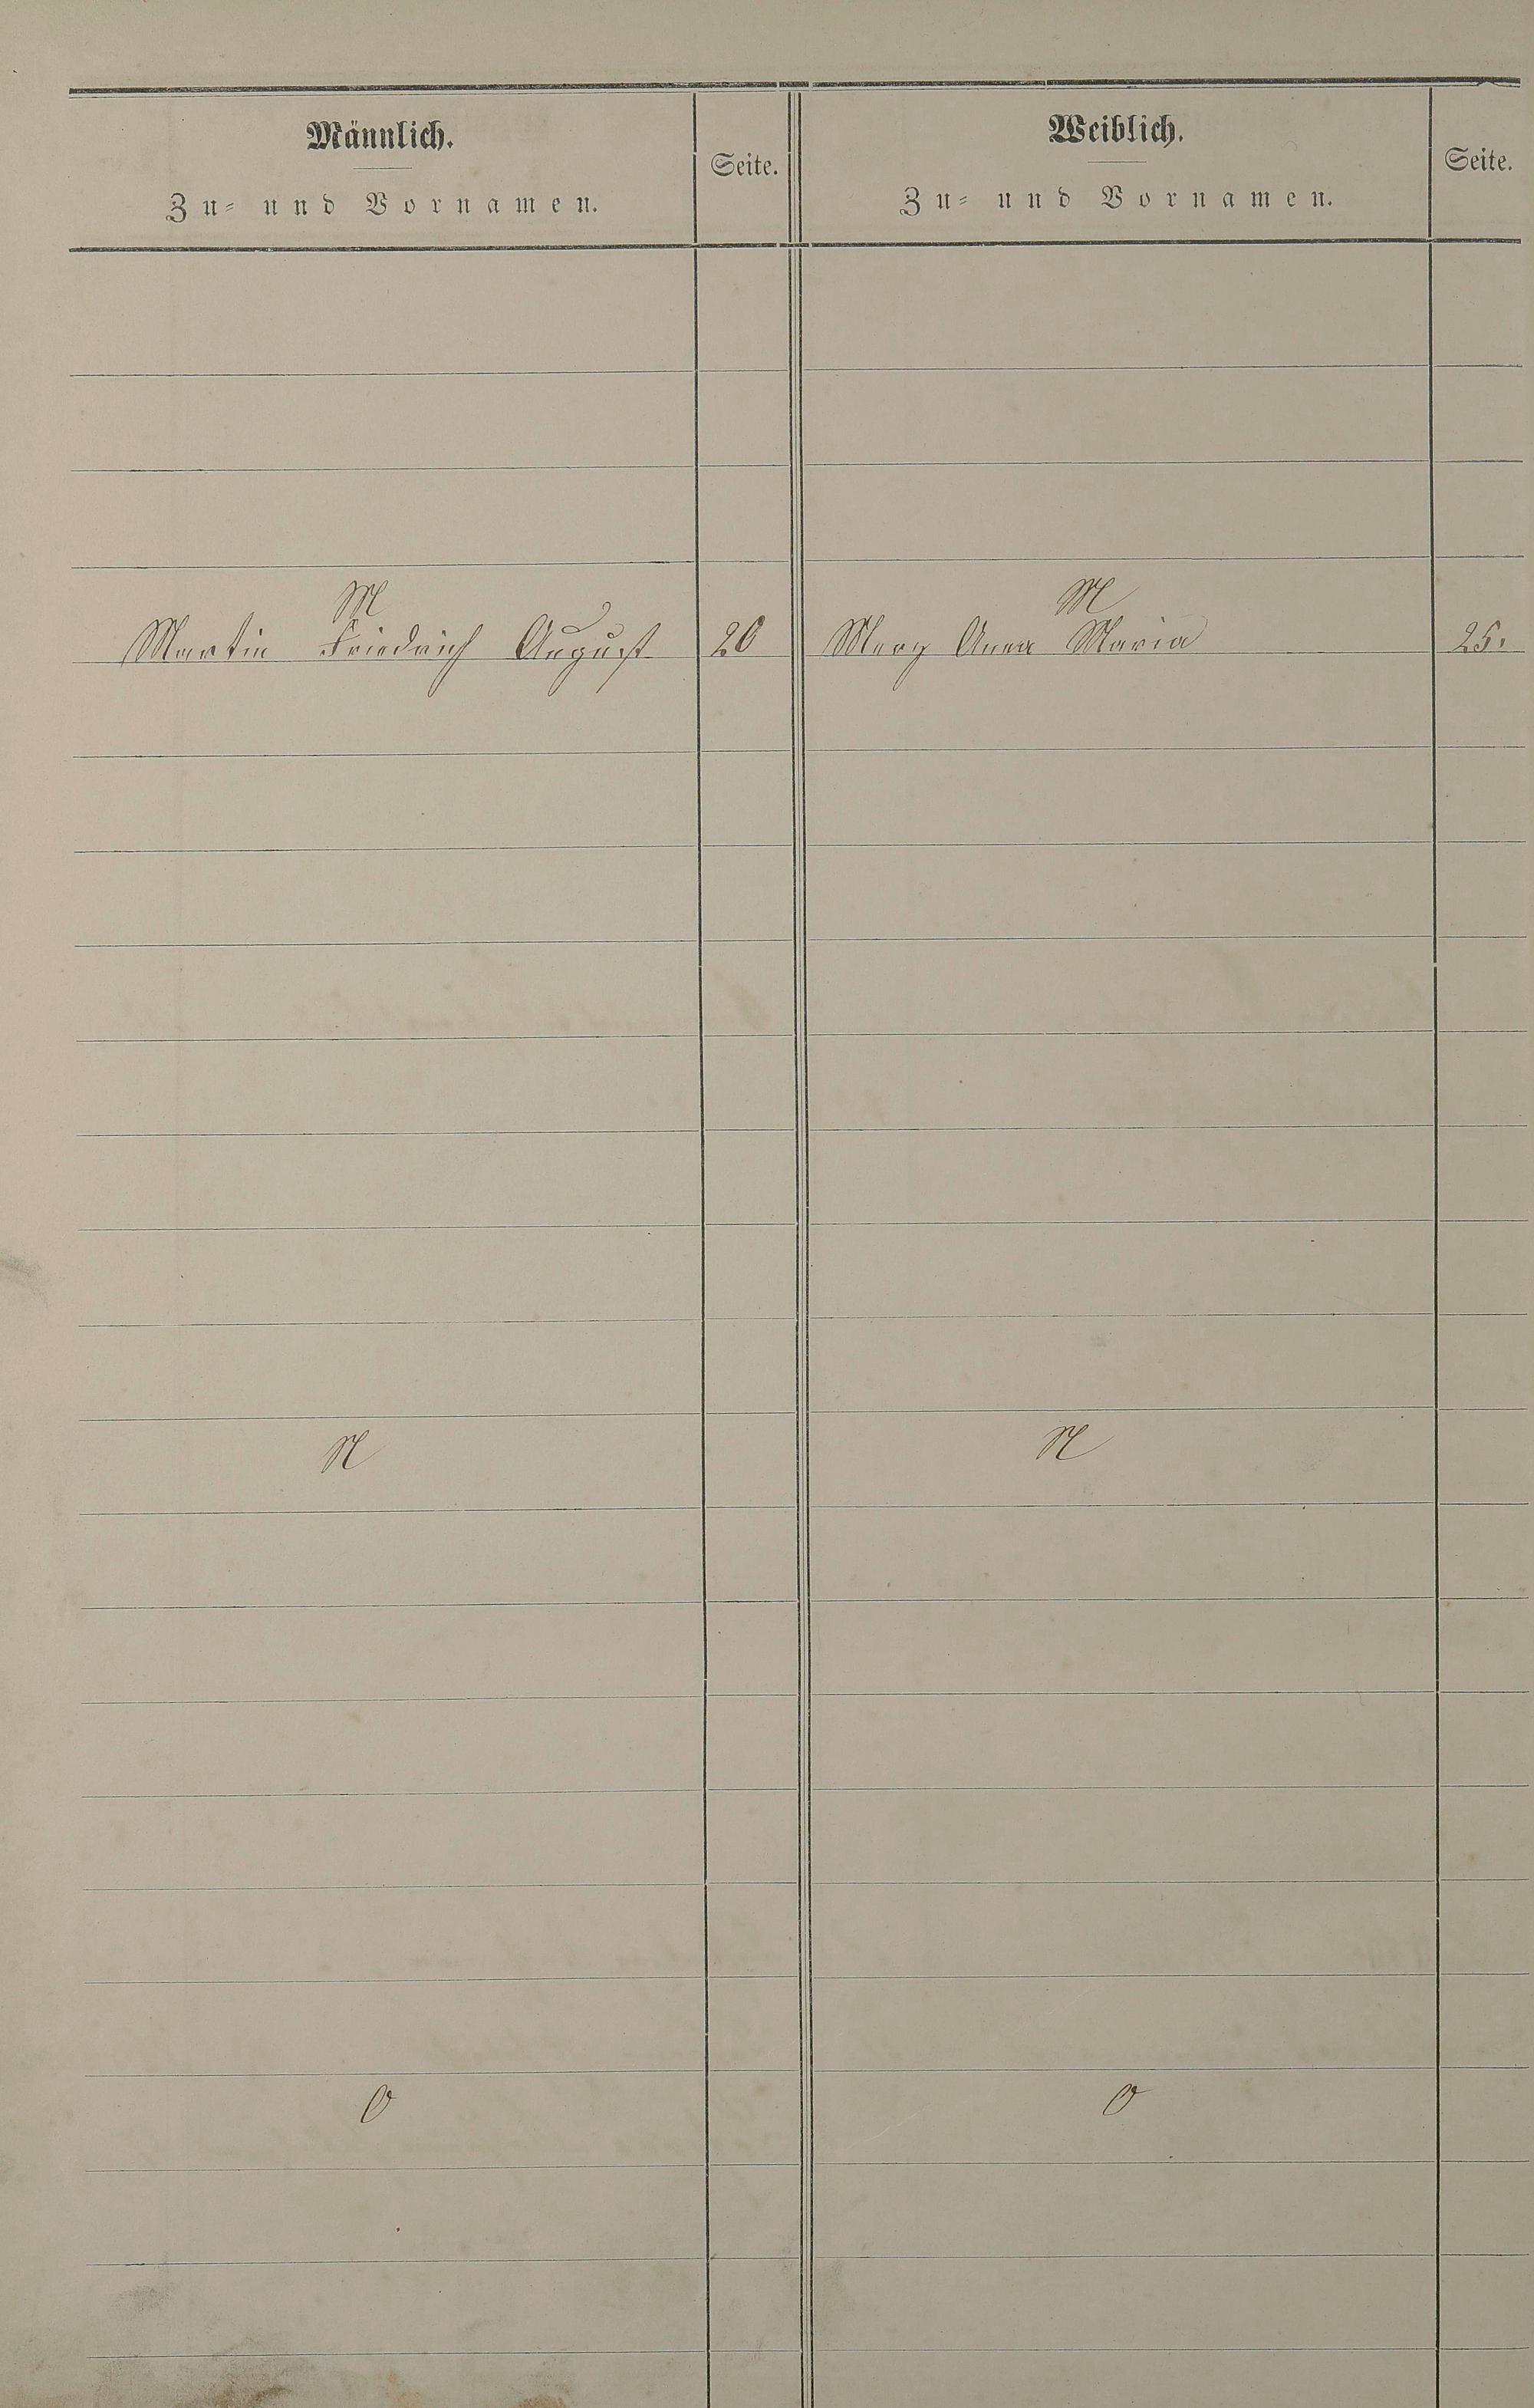 Männlich.
Zu- und Vornamen.
Seite.
Weiblich.
Zu- und Vornamen.
Seite.
M
Martin Friedrich August 20
M
Merz Anna Maria 25.
N
N
O
O